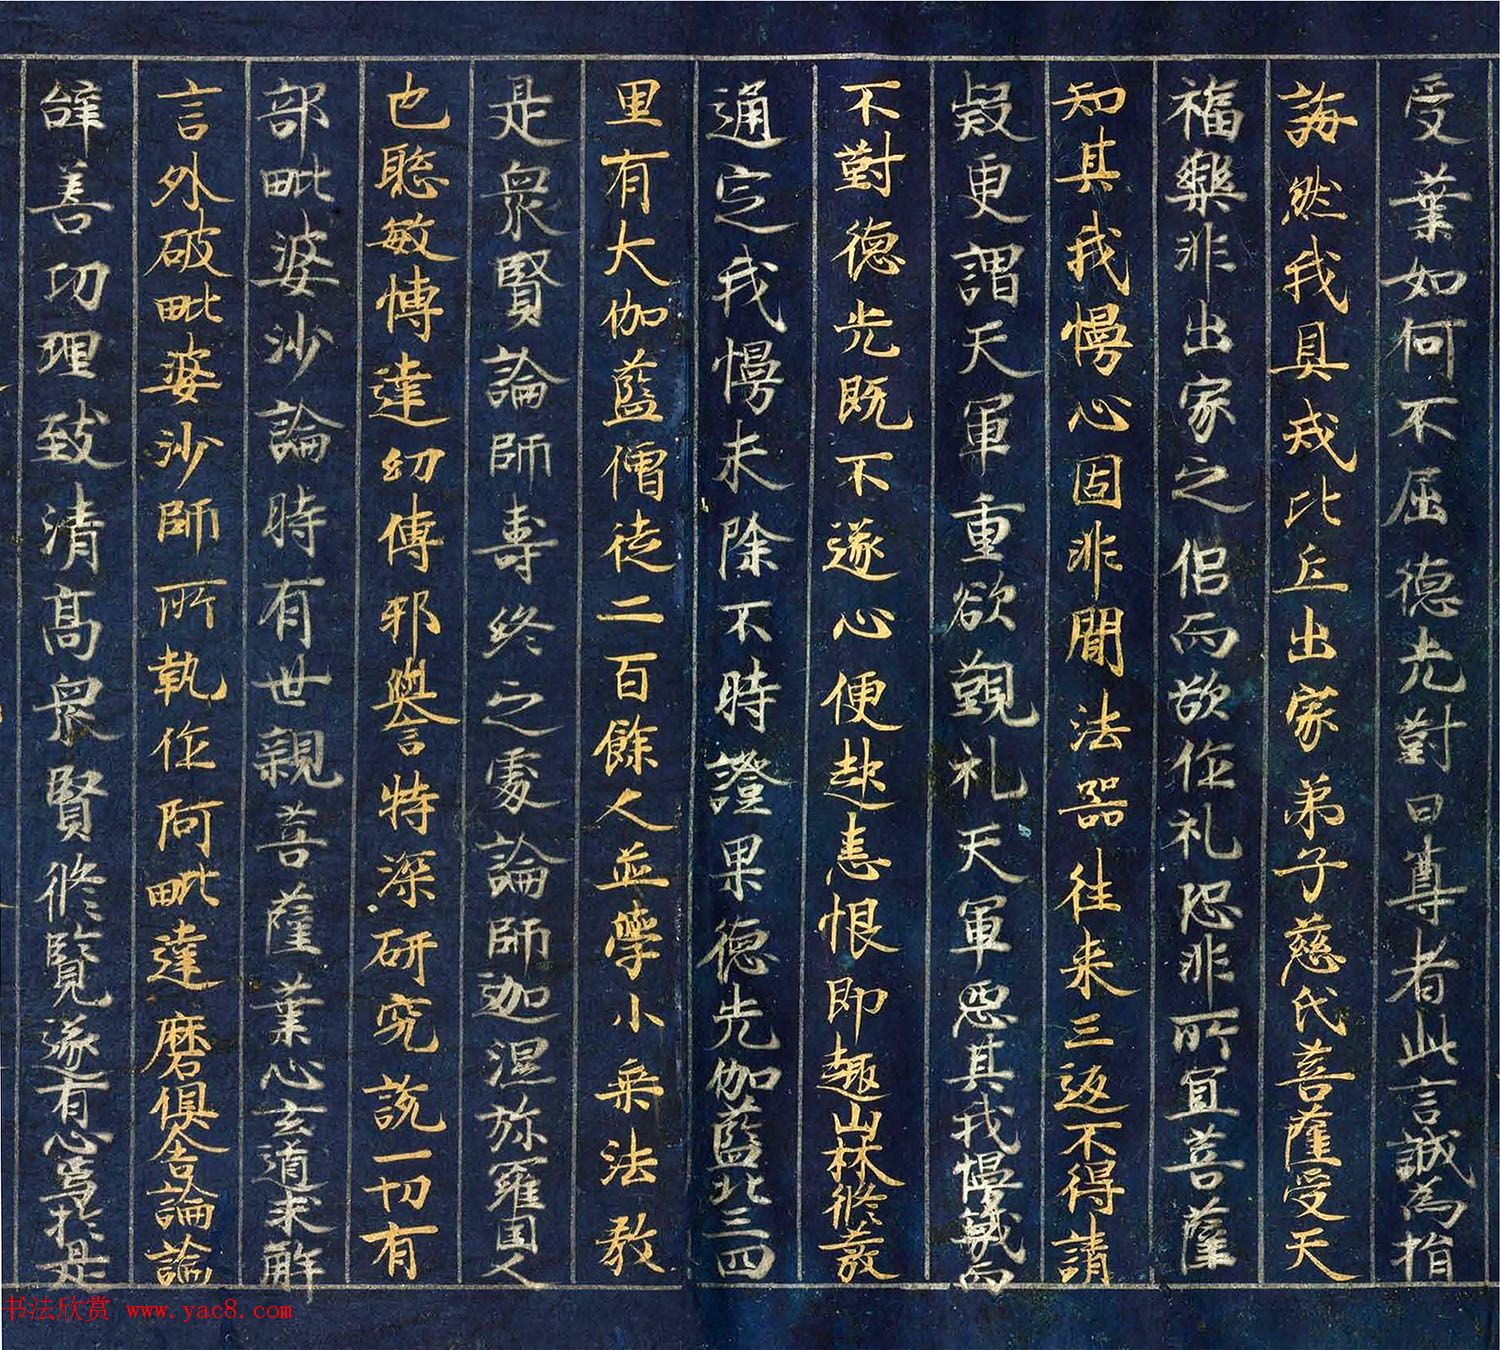 受業如何不屈德光對曰尊者此言誠為指
誨然我具戒比丘出家弟子慈氏菩薩受天
福樂非出家之侶而欲作礼恐非所宜菩薩
知其我慢心固非聞法器往来三返不得請
疑更謂天軍重欲覲礼天軍惡其我慢蔑而
不對德光既不遂心便起恚恨即趣山林修發
通定我慢未除不時證果德光伽藍北三四
里有大伽藍僧徒二百餘人並學小乘法教
是衆賢論師壽終之處論師迦濕弥羅国人
也聡敏愽達幼傳邪譽特深研究説一切有
部毗婆沙論時有世親菩薩業心玄道求解
言外破毗婆沙師所執作阿毗達磨俱舍論論
辞善㓛理致清髙衆賢修覧遂有心焉於是
书法欣赏 www.yac8.com